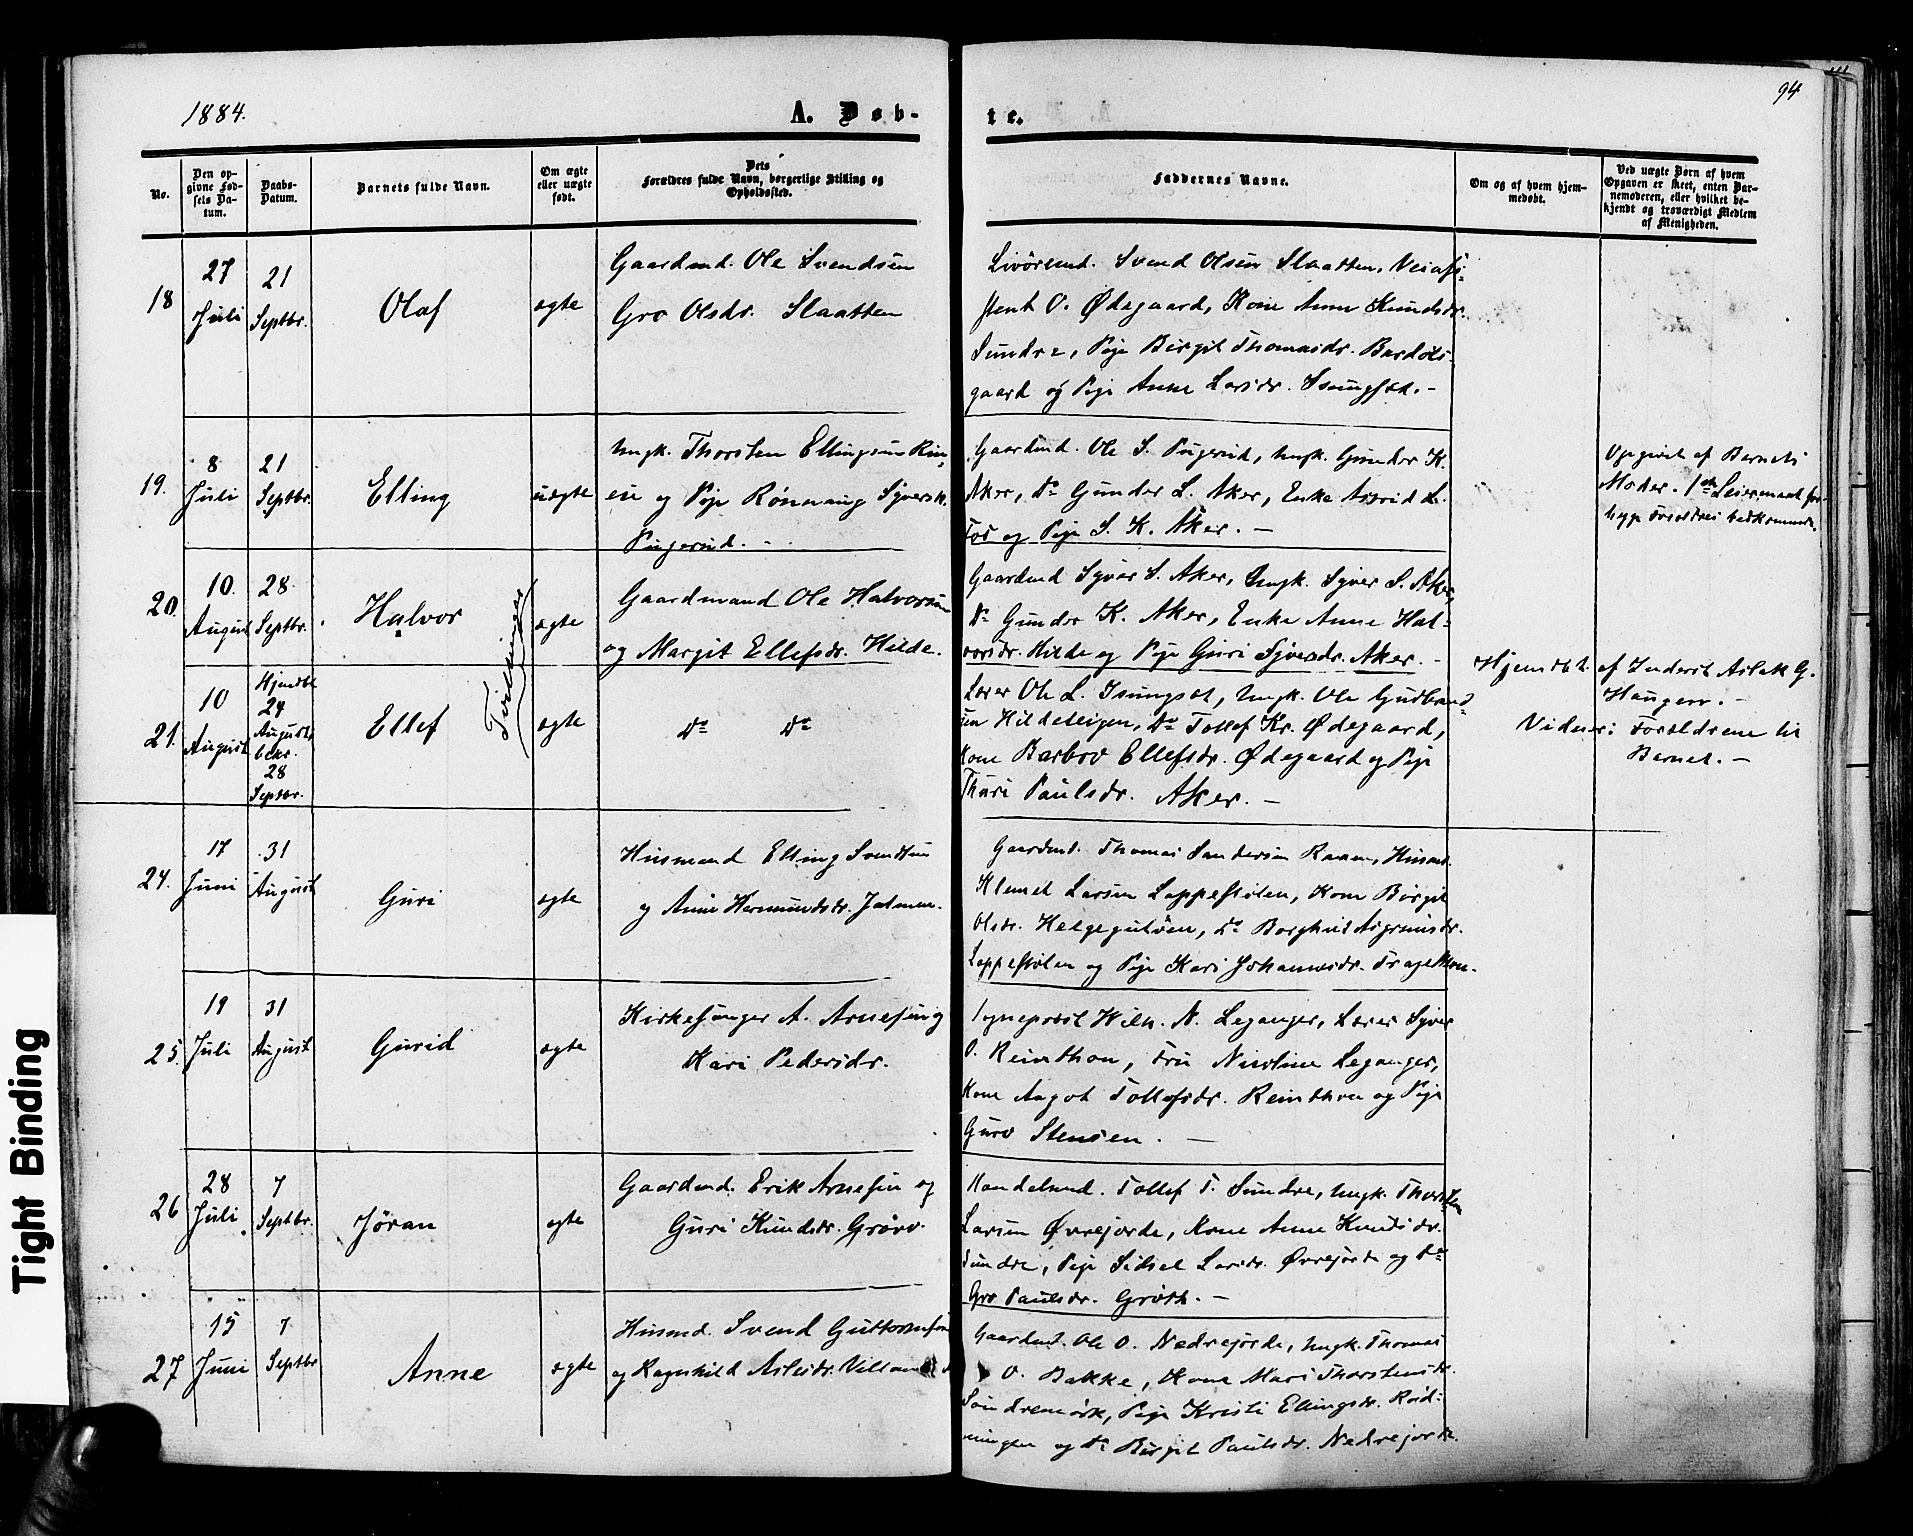 94
1884.
A. Døb-
te.
No.
Den op-
givne Fød-
sels Da-
tum.
Daabs-
Datum.
Barnets fulde Navn.
Om ægte
eller uægte
født.
Dets
Forældres fulde Navn, borgerlige Stilling og
Opholdssted.
Faddernes Navne.
Om og af hvem hjem-
medøbt.
Ved uægte Børn af hvem
Opgaven er skeet, enten Bar-
nemoderen, eller hvilket be-
kjendt og troværdigt Medlem
af Menigheden.
18
27
Juli
21
Septbr.
Olaf
ægte
Gaardmd. Ole Svendsen
Gro Olsdr. Slaatten
Livöremd. Svend Olsen Slaatten, Veiasi-
stent O. Ødegaard, Kone Anne Knudsdr.
Sundre, Pige Birgit Thomasdr. Bardols-
gaard og Pige Anne Larsdr. Isungset. -
19.
8
Juli
21
Septbr.
Elling
uægte
Ungk. Thorsten Ellingsen
og Pige Rønnaug Syversd.
Pugerud. -
Gaardmd. Ole S. Pugerud, Ungk. Gunder K.
Aker, Do Gunder L. Aker, Enke Astrid L.
og Pige S. K. Aker. -
Opgivet af Barnets
Moder. 1ste Leiermaal for
begge Forældres Vedkommende.
20.
10.
August
28
Septbr.
Halvor
Tvillinger
ægte
Gaardmand Ole Halvorsen
og Margit Ellefsdr. Hilde.
Gaardmd Syver S. Aker, Ungk. Syver S. Aker,
Do Gunder K. Aker, Enke Anne Hal-
vorsdr. Hilde og Pige Guri Syversdr. Aker. -
21.
10
August
Hjemdbt
24
August
bekr.
28
Septbr.
Ellef
ægte
Do Do
Lærer Ole L. Isungset, Ungk. Ole Gudbrand-
sen Hildeteigen, Do Tollef Kr. Ødegaard,
Kone Barbro Ellefsdr. Ødegaard og Pige
Thuri Paulsdr. Aker. -
Hjemdbt. af Inderst Aslak G.
Haugen. -
Vidner: Forældrene til
Barnet. -
24.
17
Juni
31
August
Guri
ægte
Husmand Elling Svendsen
og Anne Hermundsdr. Jatmen.
Gaardmd. Thomas Sandersen Raaen, Husmd.
Klemet Larsen Lappestølen, Kone Birgit
Olsdr. Helgeputten, Do Borghild Asgrimsdr.
Lappestølen og Pige Kari Johannesdr. Tragethon.
25.
19
Juli
31
August
Gurid
ægte
Kirkesanger A. Arnesen og
Kari Pedersdr.
Sogneprest Wilh. N. Leganger, Lærer Syver
O. Reinthon, Fru Nicoline Leganger,
Kone Angot Tollefsdr. Reinthon og Pige
Guro Stensen. -
26
28
Juli
7
Septbr.
Jøran
ægte
Gaardmd. Erik Arnesen og
Guri Knudsdr. Grøve.
Handelsmd. Tollef T. Sundre, Ungk. Thorsten
Larsen Øvrejorde, Kone Anne Knudsdr.
Sundre, Pige Sidsel Larsdr. Øvrejorde og Do
Gro Paulsdr. Grøth. -
27
15
Juni
7
Septbr
Anne
ægte
Husmd. Svend Guttormsen
og Ragnhild Aslesdr.
Gaardmd. Ole O. Nedrejorde, Ungk. Thomas
O. Bakke, Kone Mari Thorstensdr.
Søndremørk, Pige Kristi Ellingsdr. Rød-
ningen og Do Birgit Paulsdr. Nedrejorde.
Tight Binding